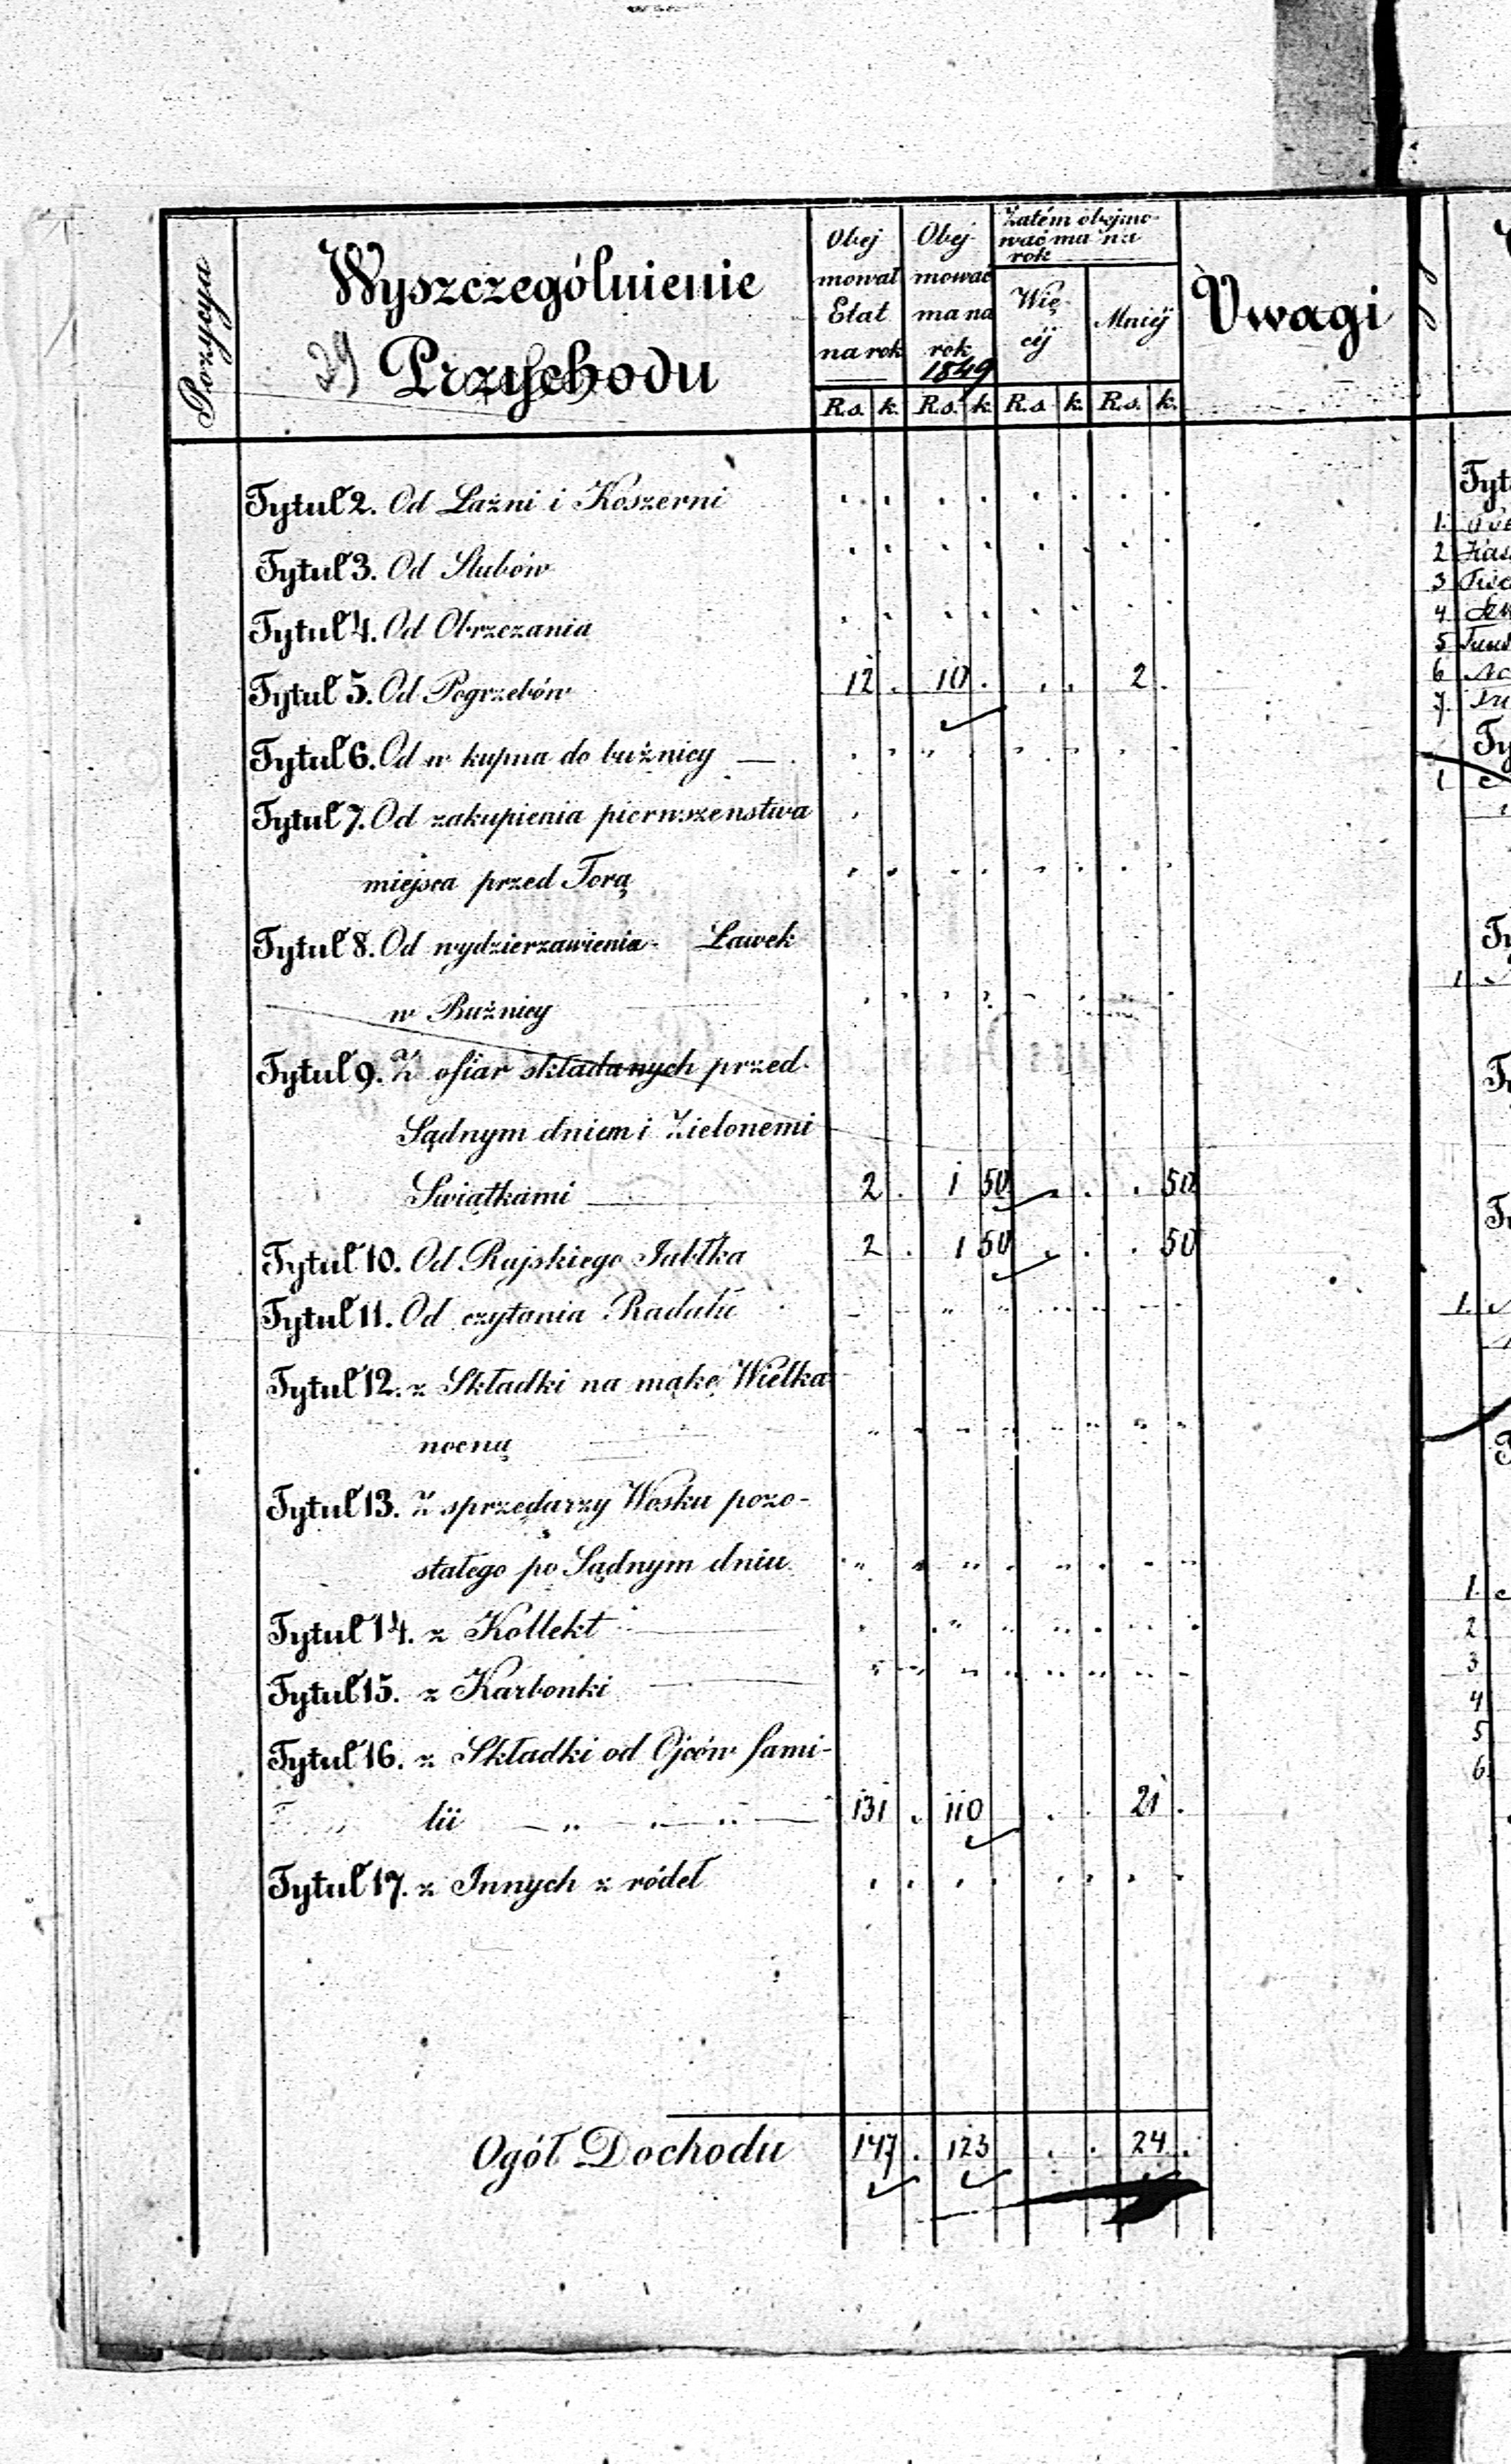 Pozycya
Wyszczególnienie
29 Przychodu
Obej
mował
Etat
na rok
Obej
mować
ma na
rok
1849
Zatém obejmo-
wać ma na
rok
Wię-
céj
Mniéj
Uwagi
R.s. k. R.s. k. R.s. k. R.s. k.
Tytuł 2. Od Łaźni i Koszerni . . . . . . . .
Tytuł 3. Od Slubów . . . . . . . .
Tytuł 4. Od Obrzezania . . . . . . . .
Tytuł 5. Od Pogrzebów 12 . 10 . . . 2 .
Tytuł 6. Od w kupna do bużnicy — . . „ . . . . .
Tytuł 7. Od zakupienia pierwszenstwa .
miejsca przed Torą . . . . . . . .
Tytuł 8. Od wydzierzawienia - Ławek
w Bużnicy . . . . . . . .
Tytuł 9. Z ofiar składanych przed-
Sądnym dniem i Zielonemi
Swiątkami — 2 . 1 50 . . . 50
Tytuł 10. Od Rajskiego Jabłka 2 . 1 50 . . . 50
Tytuł 11. Od czytania Radału
Tytuł 12. z Składki na mąkę Wielka
nocną
Tytuł 13. Z sprzedarzy Wosku pozo-
stałego po Sądnym dniu
Tytuł 14. z Kollekt
Tytuł 15. z Karbonki
Tytuł 16. z Składki od Ojców fami-
lii — „ — „ — „ — 131 . 110 . . 21 .
Tytuł 17. z Innych z ródeł . . . . . . . .
Ogół Dochodu 147 . 123 . . 24 .
Tyt
1.
2
3
4
5
6
7.
1
1.
1.
1.
2
3
4
5
6